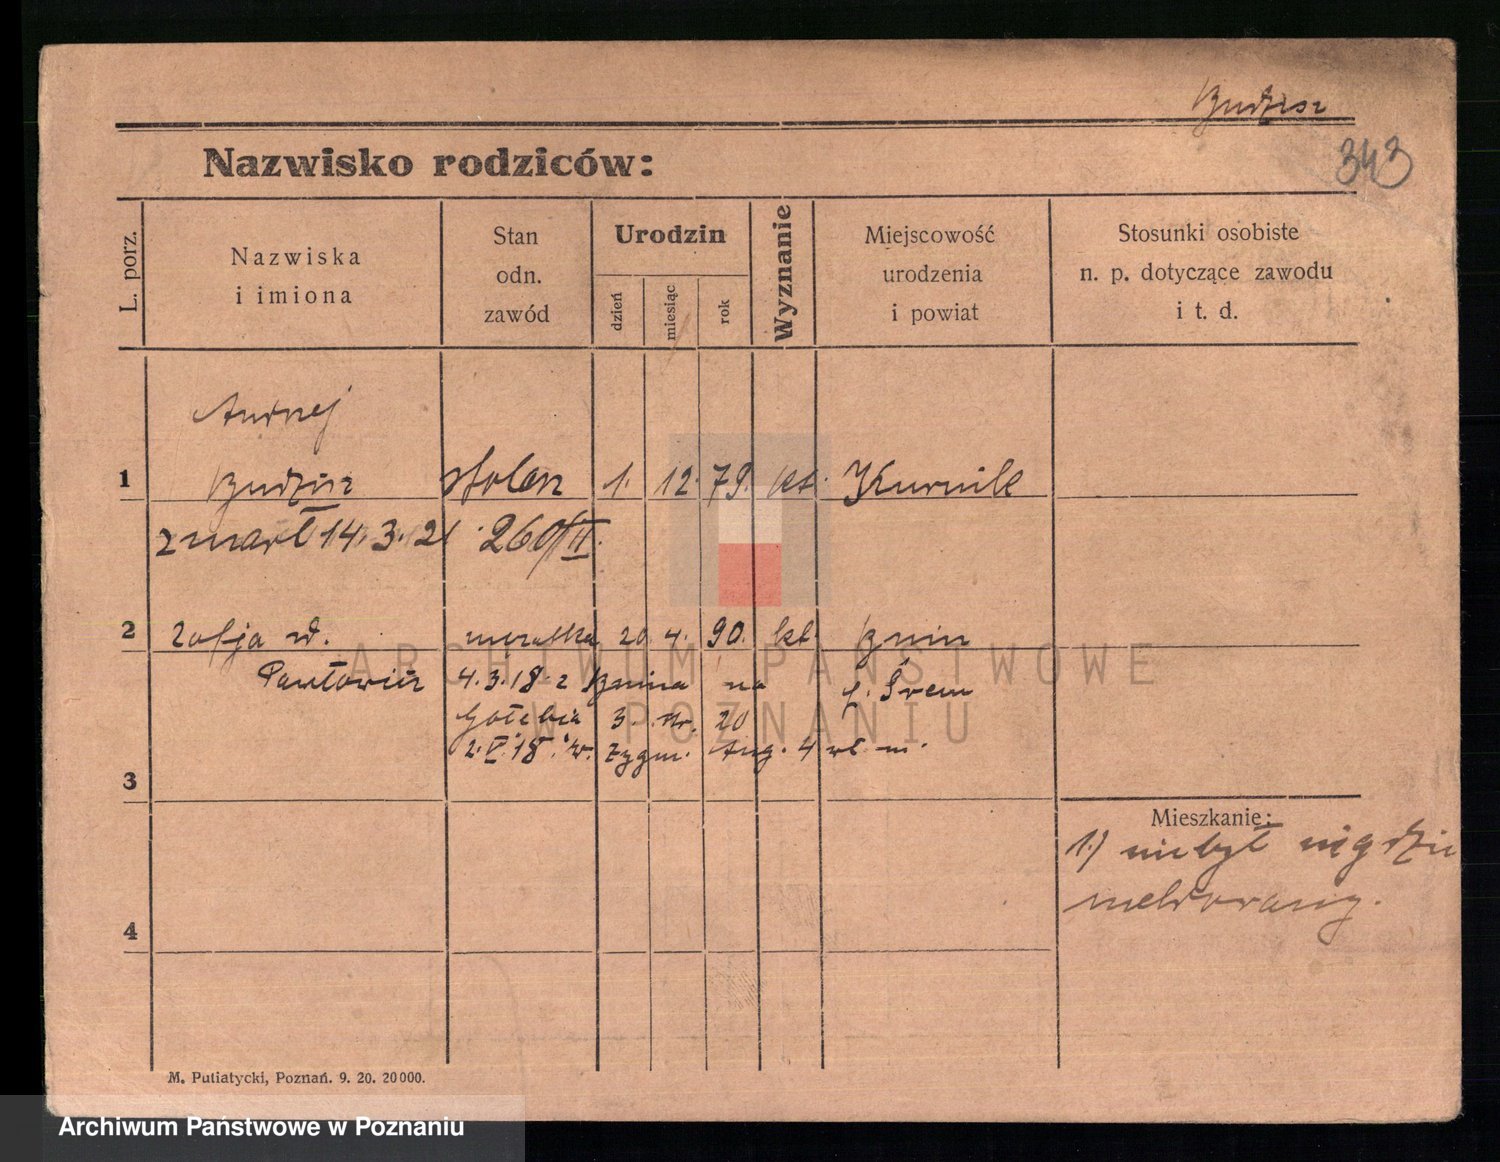 Budzisz
343
Nazwisko rodziców:
L. porz.
Nazwiska
i imiona
Stan
odn.
zawód
Urodzin
dzień
miesiąc
rok
Wyznanie
Miejscowość
urodzenia
i powiat
Stosunki osobiste
n. p. dotyczące zawodu
i t. d.
Andrzej
1 Budzisz stolarz 1. 12. 79. kt. Kurnik
zmarł 14.3.21 260/II.
2 Zofja w. 20 4. 90. kt. Bnin
Pawłowicz 4.3.18 z Bnina na p. Śrem
Gołębia 3. 20
2.V.18. w. Zygm. Aug. 4
3
Mieszkanie:
1.) niebył nigdzie
meldowany.
4
M. Putiatycki, Poznań. 9. 20. 20000.
ARCHIWUM PAŃSTWOWE
W POZNANIU
Archiwum Państwowe w Poznaniu